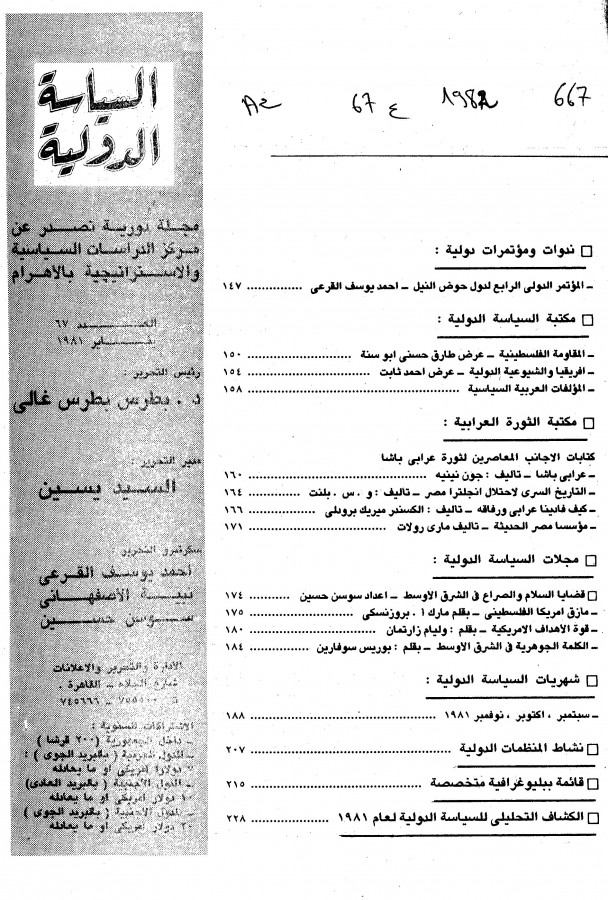 667
1982
67 ع
السياسة
الدولية
مجلة دورية تصدر عن
مركز الدراسات السياسية
والاستراتيجية بالاهرام
العدد ٦٧
يناير ١٩٨١
رئيس التحرير :
د . بطرس بطرس غالى
مدير التحرير :
السيد يسين
سكرتيرو التحرير :
أحمد يوسف القرعى
نبية الأصفهانى
سوسن حسين
الادارة والتحرير والاعلانات
شارع الجلاء ــ القاهرة .
٧٥٥٥٠٠ ــ ٧٤٥٦٦٦
الاشتراكات السنوية :
ــ داخل الجمهورية ( ٢٠٠ قرشا )
ــ الدول العربية ( بالبريد الجوى ) :
دولارا أمريكى او ما يعادله
ــ الدول الاجنبية ( بالبريد العادى)
دولار أمريكى او ما يعادله
ــ الدول الاجنبية ( بالبريد الجوى )
٢٠ دولار أمريكى او ما يعادله
□ ندوات ومؤتمرات دولية :
ــ المؤتمر الدولى الرابع لدول حوض النيل ــ احمد يوسف القرعى .............. ١٤٧
□ مكتبة السياسة الدولية :
ــ المقاومة الفلسطينية ــ عرض طارق حسنى ابو سنة .............. ١٥٠
ــ افريقيا والشيوعية الدولية ــ عرض احمد ثابت .............. ١٥٤
ــ المؤلفات العربية السياسية .............. ١٥٨
□ مكتبة الثورة العرابية :
كتابات الاجانب المعاصرين لثورة عرابى باشا
ــ عرابى باشا ــ تاليف : جون نينيه .............. ١٦٠
ــ التاريخ السرى لاحتلال انجلترا مصر ــ تاليف : و . س . بلنت .............. ١٦٤
ــ كيف دافعنا عرابى ورفاقه ــ تاليف : الكسندر ميريك برودلى .............. ١٦٦
ــ مؤسسا مصر الحديثة ــ تاليف مارى رولات .............. ١٧١
□ مجلات السياسة الدولية :
□ قضايا السلام والصراع فى الشرق الاوسط ــ اعداد سوسن حسين .............. ١٧٤
ــ مازق امريكا الفلسطينى ــ بقلم مارك ا . بروزنسكى .............. ١٧٥
ــ قوة الاهداف الامريكية ــ بقلم : وليام زارتمان .............. ١٨٠
ــ الكلمة الجوهرية فى الشرق الاوسط ــ بقلم : بوريس سوفارين .............. ١٨٤
□ شهريات السياسة الدولية :
ــ سبتمبر ، اكتوبر ، نوفمبر ١٩٨١ .............. ١٨٨
□ نشاط المنظمات الدولية .............. ٢٠٧
□ قائمة ببليوغرافية متخصصة .............. ٢١٥
□ الكشاف التحليلى للسياسة الدولية لعام ١٩٨١ .............. ٢٢٨